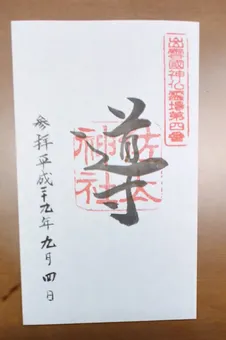 出雲國神仏霊場第四番
導
佐太
神社
参拝平成二十九年九月四日